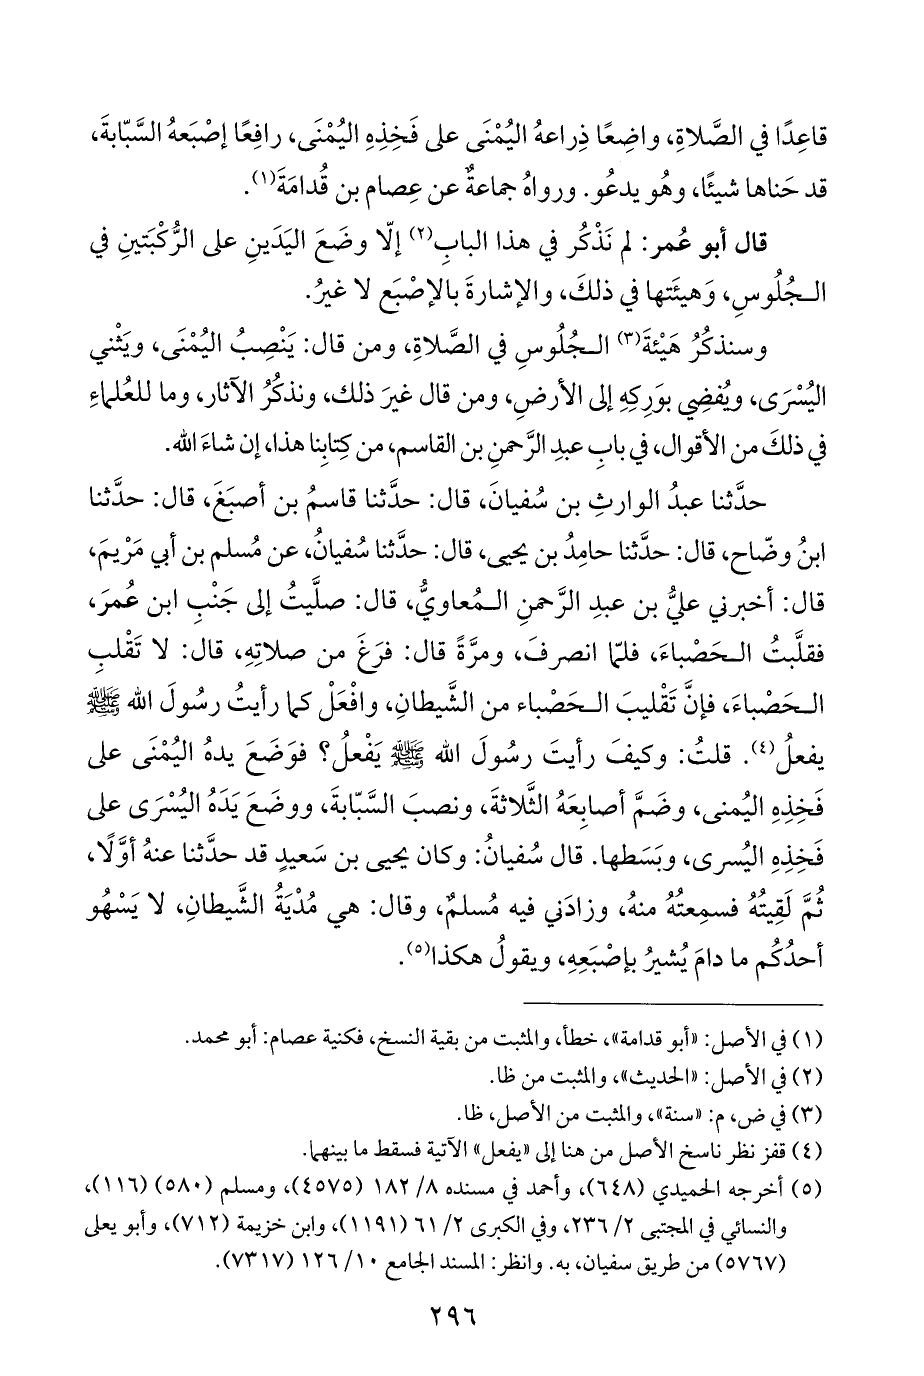 قاعِدًا في الصَّلاةِ، واضِعًا ذِراعهُ اليُمْنَى على فَخِذِهِ اليُمْنَى، رافِعًا إصْبَعهُ السَّبّابةَ،
قد حَناها شيئًا، وهُو يدعُو. ورواهُ جماعةٌ عن عِصام بن قُدامَةَ(١).
قال أبو عُمر: لم نَذْكُر في هذا البابِ(٢) إلّا وضَعَ اليَدَينِ على الرُّكْبَتينِ في
الـجُلُوسِ، وَهيئَتها في ذلكَ، والإشارةَ بالإصْبَع لا غيرُ.
وسنذكُرُ هَيْئةَ(٣) الـجُلُوسِ في الصَّلاةِ، ومن قال: يَنْصِبُ اليُمْنَى، ويَثْني
اليُسْرَى، ويُفضِي بوَرِكِهِ إلى الأرضِ، ومن قال غيرَ ذلك، ونذكُرُ الآثار، وما للعُلماءِ
في ذلكَ من الأقوال، في بابِ عبدِ الرَّحمنِ بن القاسم، من كِتابِنا هذا، إن شاءَ الله.
حدَّثنا عبدُ الوارثِ بن سُفيانَ، قال: حدَّثنا قاسمُ بن أصبَغَ، قال: حدَّثنا
ابنُ وضّاح، قال: حدَّثنا حامِدُ بن يحيى، قال: حدَّثنا سُفيانُ، عن مُسلم بن أبي مَرْيمَ،
قال: أخبرني عليُّ بن عبدِ الرَّحمنِ الـمُعاويُّ، قال: صلَّيتُ إلى جَنْبِ ابن عمرَ،
فقلَّبتُ الـحَصْباءَ، فلمّا انصرفَ، ومرَّةً قال: فرَغَ من صلاتِهِ، قال: لا تَقْلبِ
الـحَصْباءَ، فإنَّ تَقْليبَ الـحَصْباء من الشَّيطانِ، وافْعَلْ كما رأيتُ رسُولَ الله ﷺ
يفعلُ(٤). قلتُ: وكيفَ رأيتَ رسُولَ الله ﷺ يَفْعلُ؟ فوَضَعَ يدهُ اليُمْنَى على
فَخِذِهِ اليُمنى، وضَمَّ أصابِعَهُ الثَّلاثةَ، ونصبَ السَّبّابةَ، ووضَعَ يَدَهُ اليُسْرَى على
فَخِذِهِ اليُسرى، وبَسَطها. قال سُفيانُ: وكان يحيى بن سَعيدٍ قد حدَّثنا عنهُ أوَّلًا،
ثُمَّ لَقِيتُهُ فسمِعتُهُ منهُ، وزادَني فيه مُسلمٌ، وقال: هي مُدْيَةُ الشَّيطانِ، لا يَسْهُو
أحدُكُم ما دامَ يُشيرُ بإصْبَعِهِ، ويقولُ هكذا(٥).
(١) في الأصل: «أبو قدامة»، خطأ، والمثبت من بقية النسخ، فكنية عصام: أبو محمد.
(٢) في الأصل: «الحديث»، والمثبت من ظا.
(٣) في ض، م: «سنة»، والمثبت من الأصل، ظا.
(٤) قفز نظر ناسخ الأصل من هنا إلى «يفعل» الآتية فسقط ما بينهما.
(٥) أخرجه الحميدي (٦٤٨)، وأحمد في مسنده ٨/ ١٨٢ (٤٥٧٥)، ومسلم (٥٨٠) (١١٦)،
والنسائي في المجتبى ٢/ ٢٣٦، وفي الكبرى ٢/ ٦١ (١١٩١)، وابن خزيمة (٧١٢)، وأبو يعلى
(٥٧٦٧) من طريق سفيان، به. وانظر: المسند الجامع ١٠/ ١٢٦ (٧٣١٧).
٢٩٦